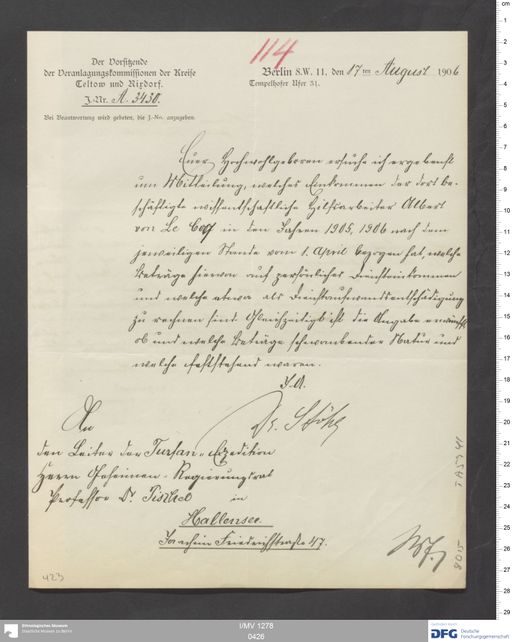 114
Der Vorsitzende
der Veranlagungskommissionen der Kreise
Teltow und Rixdorf.
J.-Nr. A. 3430.
Bei Beantwortung wird gebeten, die J.-No. anzugeben.
Berlin S.W. 11, den 17 ten August 1906
Tempelhofer Ufer 31.
Euer Hochwohlgeboren ersuche ich ergebenst
um Mitteilung, welches Einkommen der dort be-
schäftigte wissentschaftliche Hilfsarbeiter Albert
von Le Coq in den Jahren 1905, 1906 nach dem
jeweiligen Stande vom 1. April bezogen hat, welche
Beträge hiervon auf persönliches Diensteinkommen
und welche etwa als Dienstaufwandsentschädigung
zu rechnen sind. Gleichzeitig ist die Angabe erwünscht,
ob und welche Beträge schwankender Natur und
welche feststehend waren.
J.A.
Dr.
An
den Leiter der Turfan-Expedition
Herrn Geheimen-Regierungsrat
Professor Dr. Pischel
in
Hallensee.
Joachim Friedrichstraße 47.
423
I/MV 1278
0426
Ethnologisches Museum
Staatliche Museen zu Berlin
DFG Deutsche
Forschungsgemeinschaft